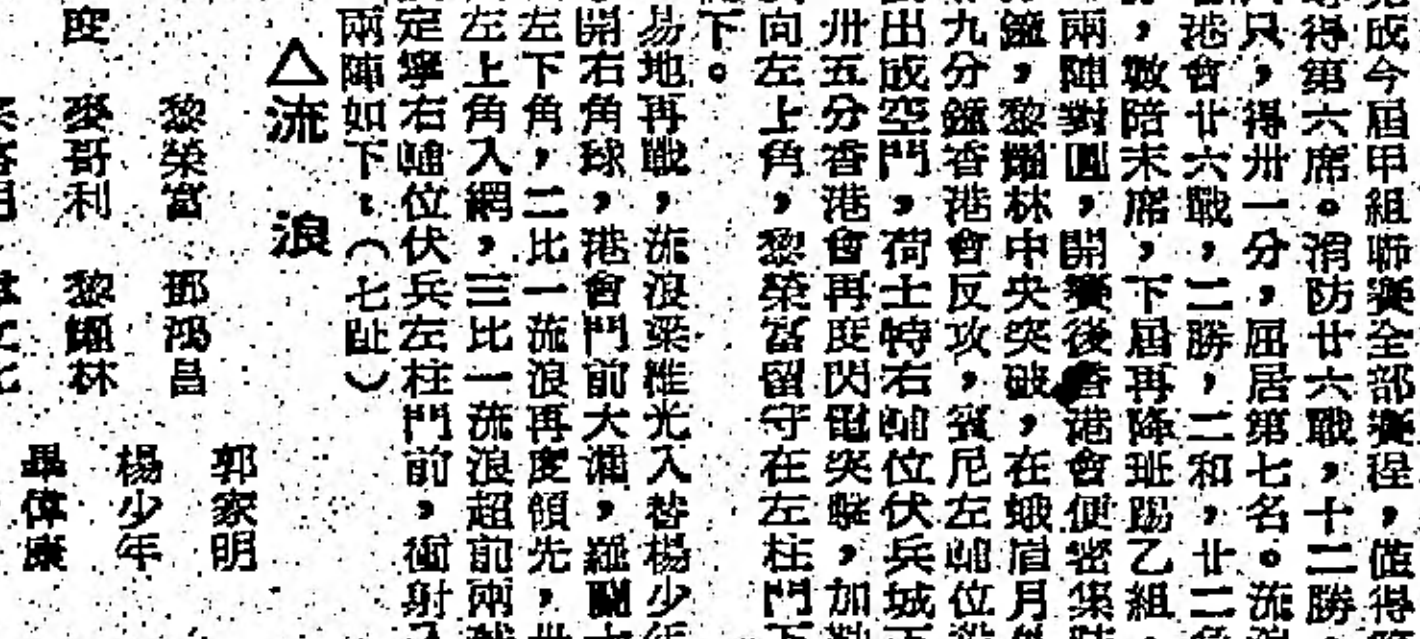 成今屆甲組聯賽全部賽程，值得
得第六席。消防廿六戰，十二勝
只，得卅一分，屈居第七名。流
港會廿六戰，二勝，二和，廿二
，敬陪末席，下屆再降班踢乙組，
兩陣對圓，開賽後香港會便密集
鐘，黎耀林中央突破，在蛾眉月
九分鐘香港會反攻，賓尼左輔位
出成空門，荷士特右輔位伏兵城
卅五分香港會再度閃電突擊，加
向左上角，黎榮富留守在左柱門下
下。
易地再戰，流浪梁維光入替楊少
開右角球，港會門前大混，羅
左下角，二比一流浪再度領先，
左上角入網，三比一流浪超前兩
定寧右輔位伏兵左柱門前，衝射
兩陣如下：（七趾）
△流浪
郭家明
黎榮富 鄧鴻昌
楊少年
麥哥利 黎耀林
畢偉康